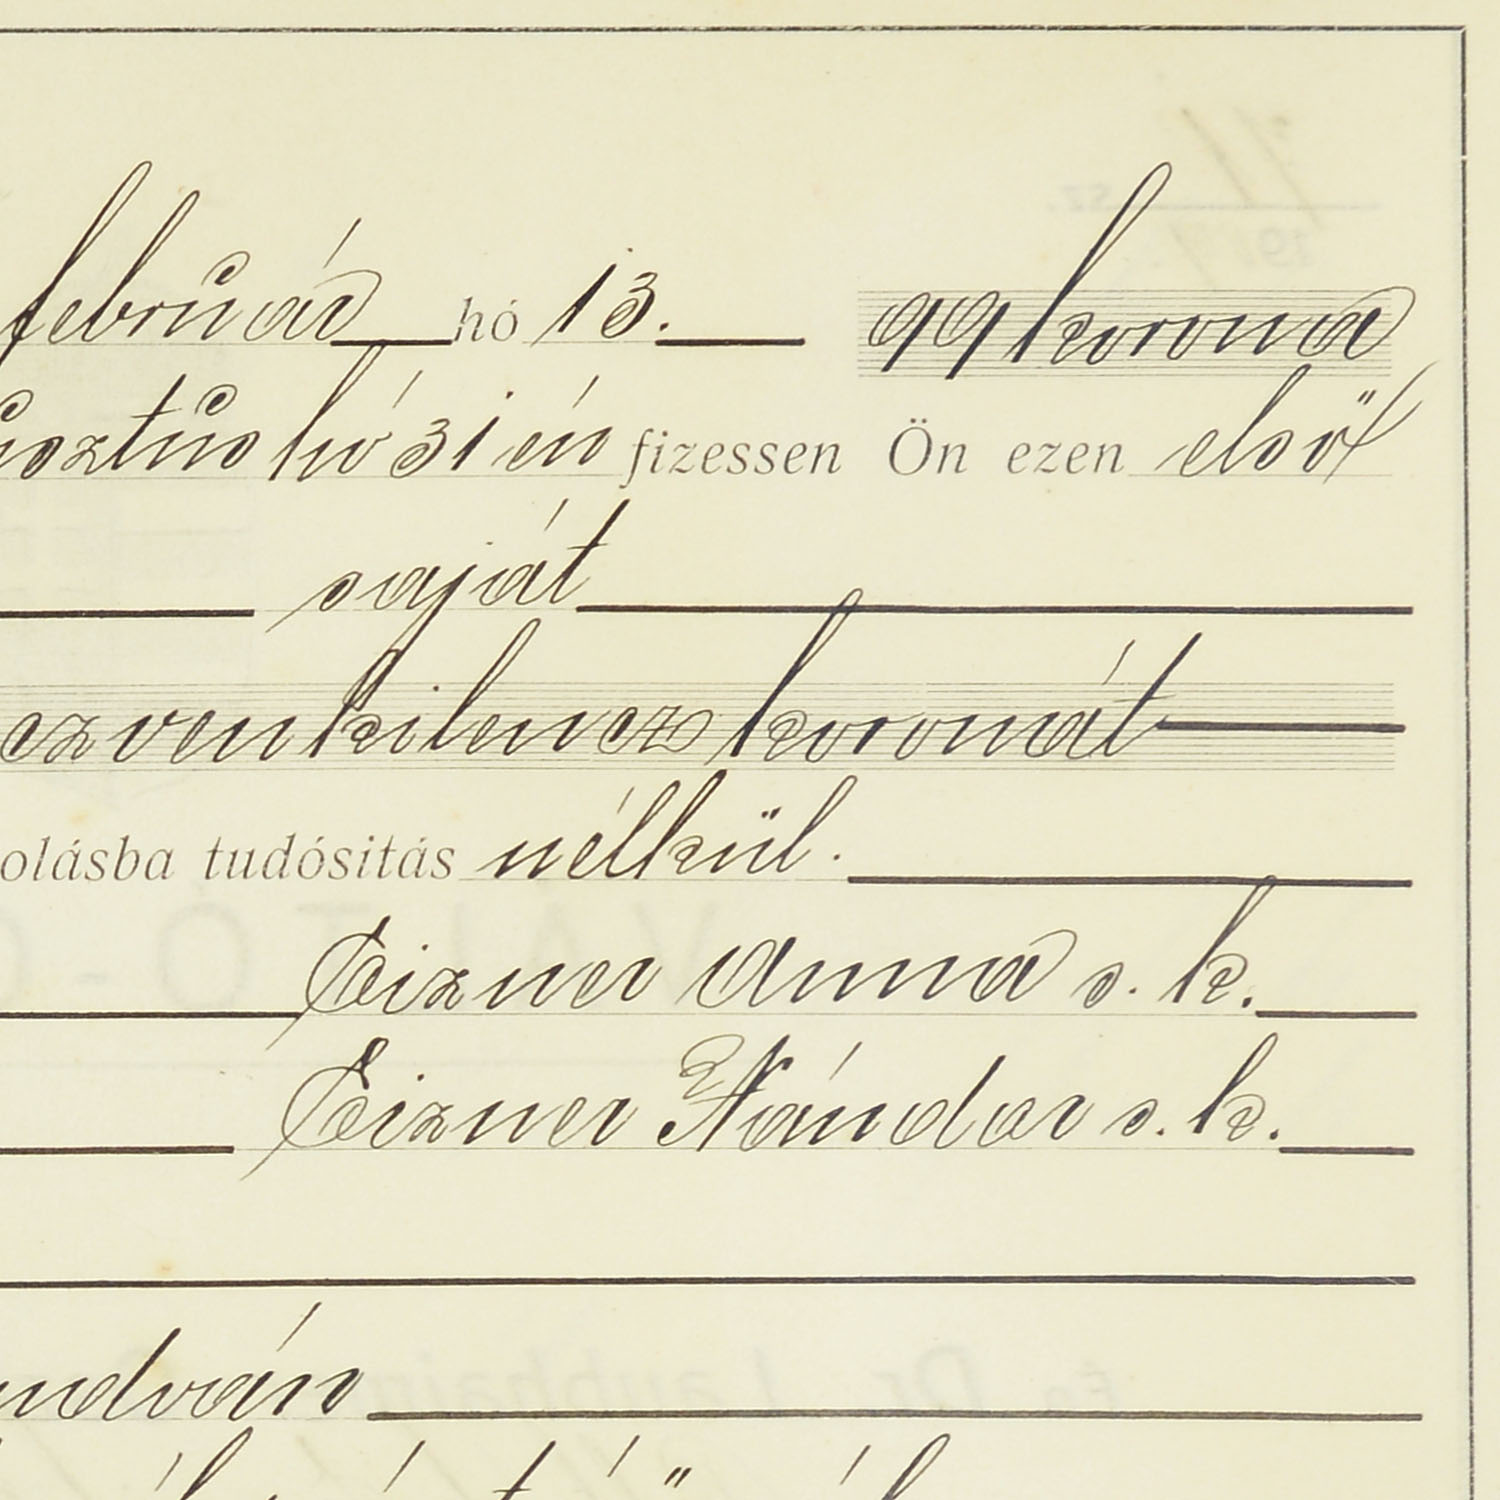 február hó 13. 99 korona
usztus hó 31 én fizessen Ön ezen első
saját
czvenkilencz koronát
olásba tudósitás nélkül.
Eizner Anna s. k.
Eizner Nándor s. k.
udván